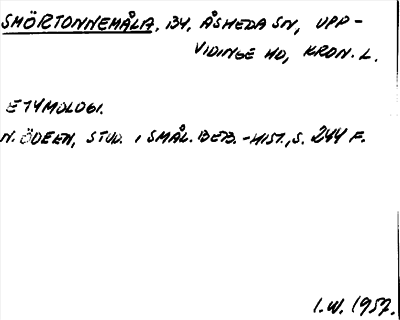 SMÖRTONNEMÅLA, BY, ÅSHEDA SN, UPP-
VIDINGE HD, KRON. L.
ETYMOLOGI.
N. ÖDEEN, STUD. I SMÅL. BEB.-HIST., S. 244 F.
I.W. 1957.